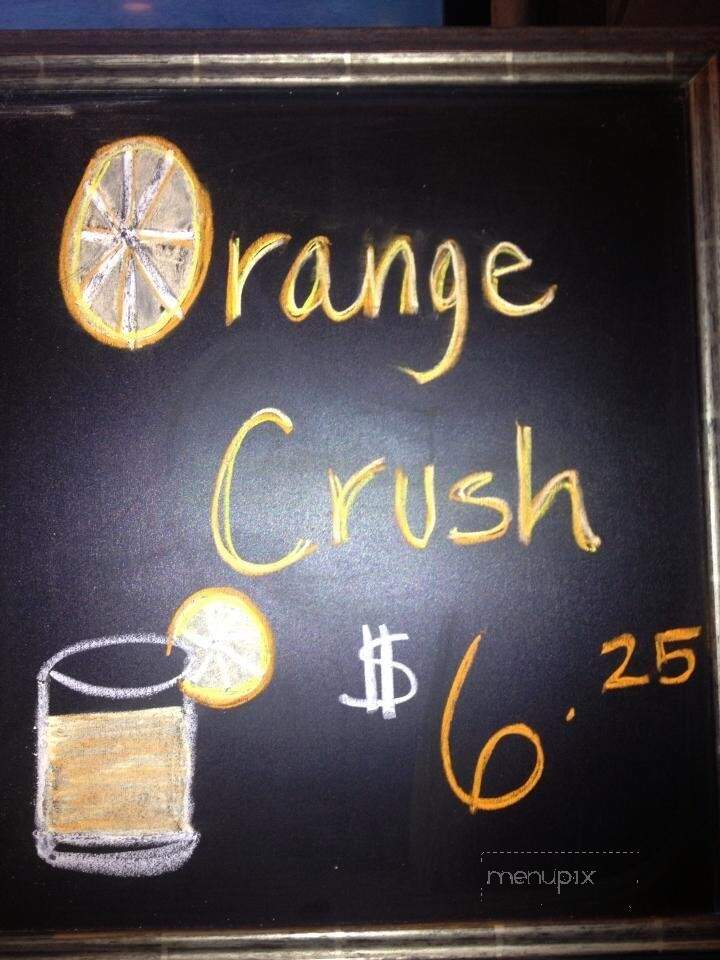 Orange
Crush
$6.25
menupix